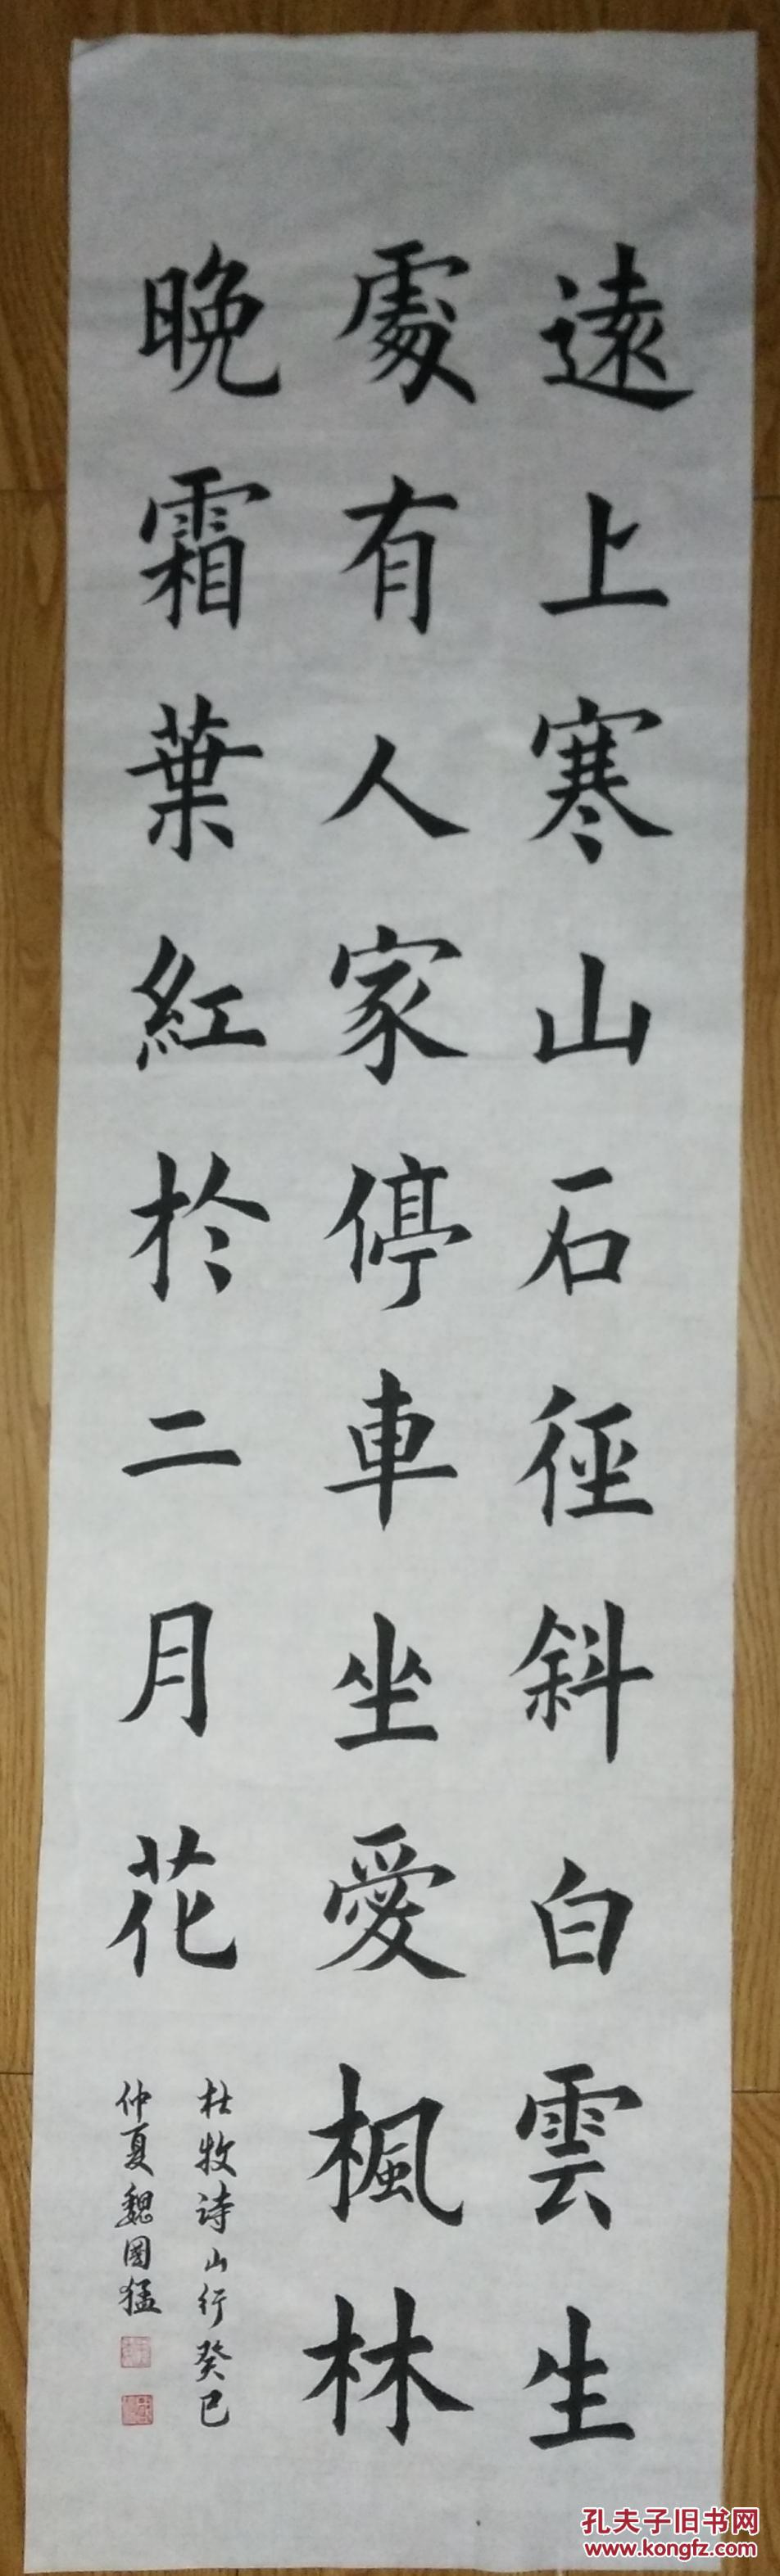 遠上寒山石徑斜白雲生
處有人家停車坐愛楓林
晚霜葉紅於二月花
杜牧诗山行癸巳
仲夏魏國猛
孔夫子旧书网
www.kongfz.com